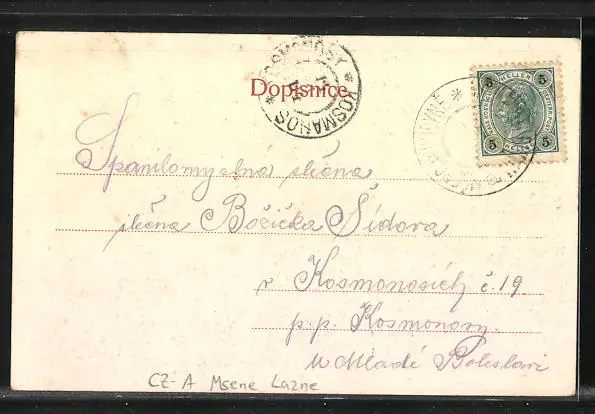 KOSMONOSY * KOSMANOS *
Dopisnice
5 HELLER 5
5 HELLER 5
Spanilomyslná slečna
slečna Božička Šídova
v Kosmonosích č. 19
p. p. Kosmonosy.
u Mladé Boleslavi
CZ-A Msene Lazne